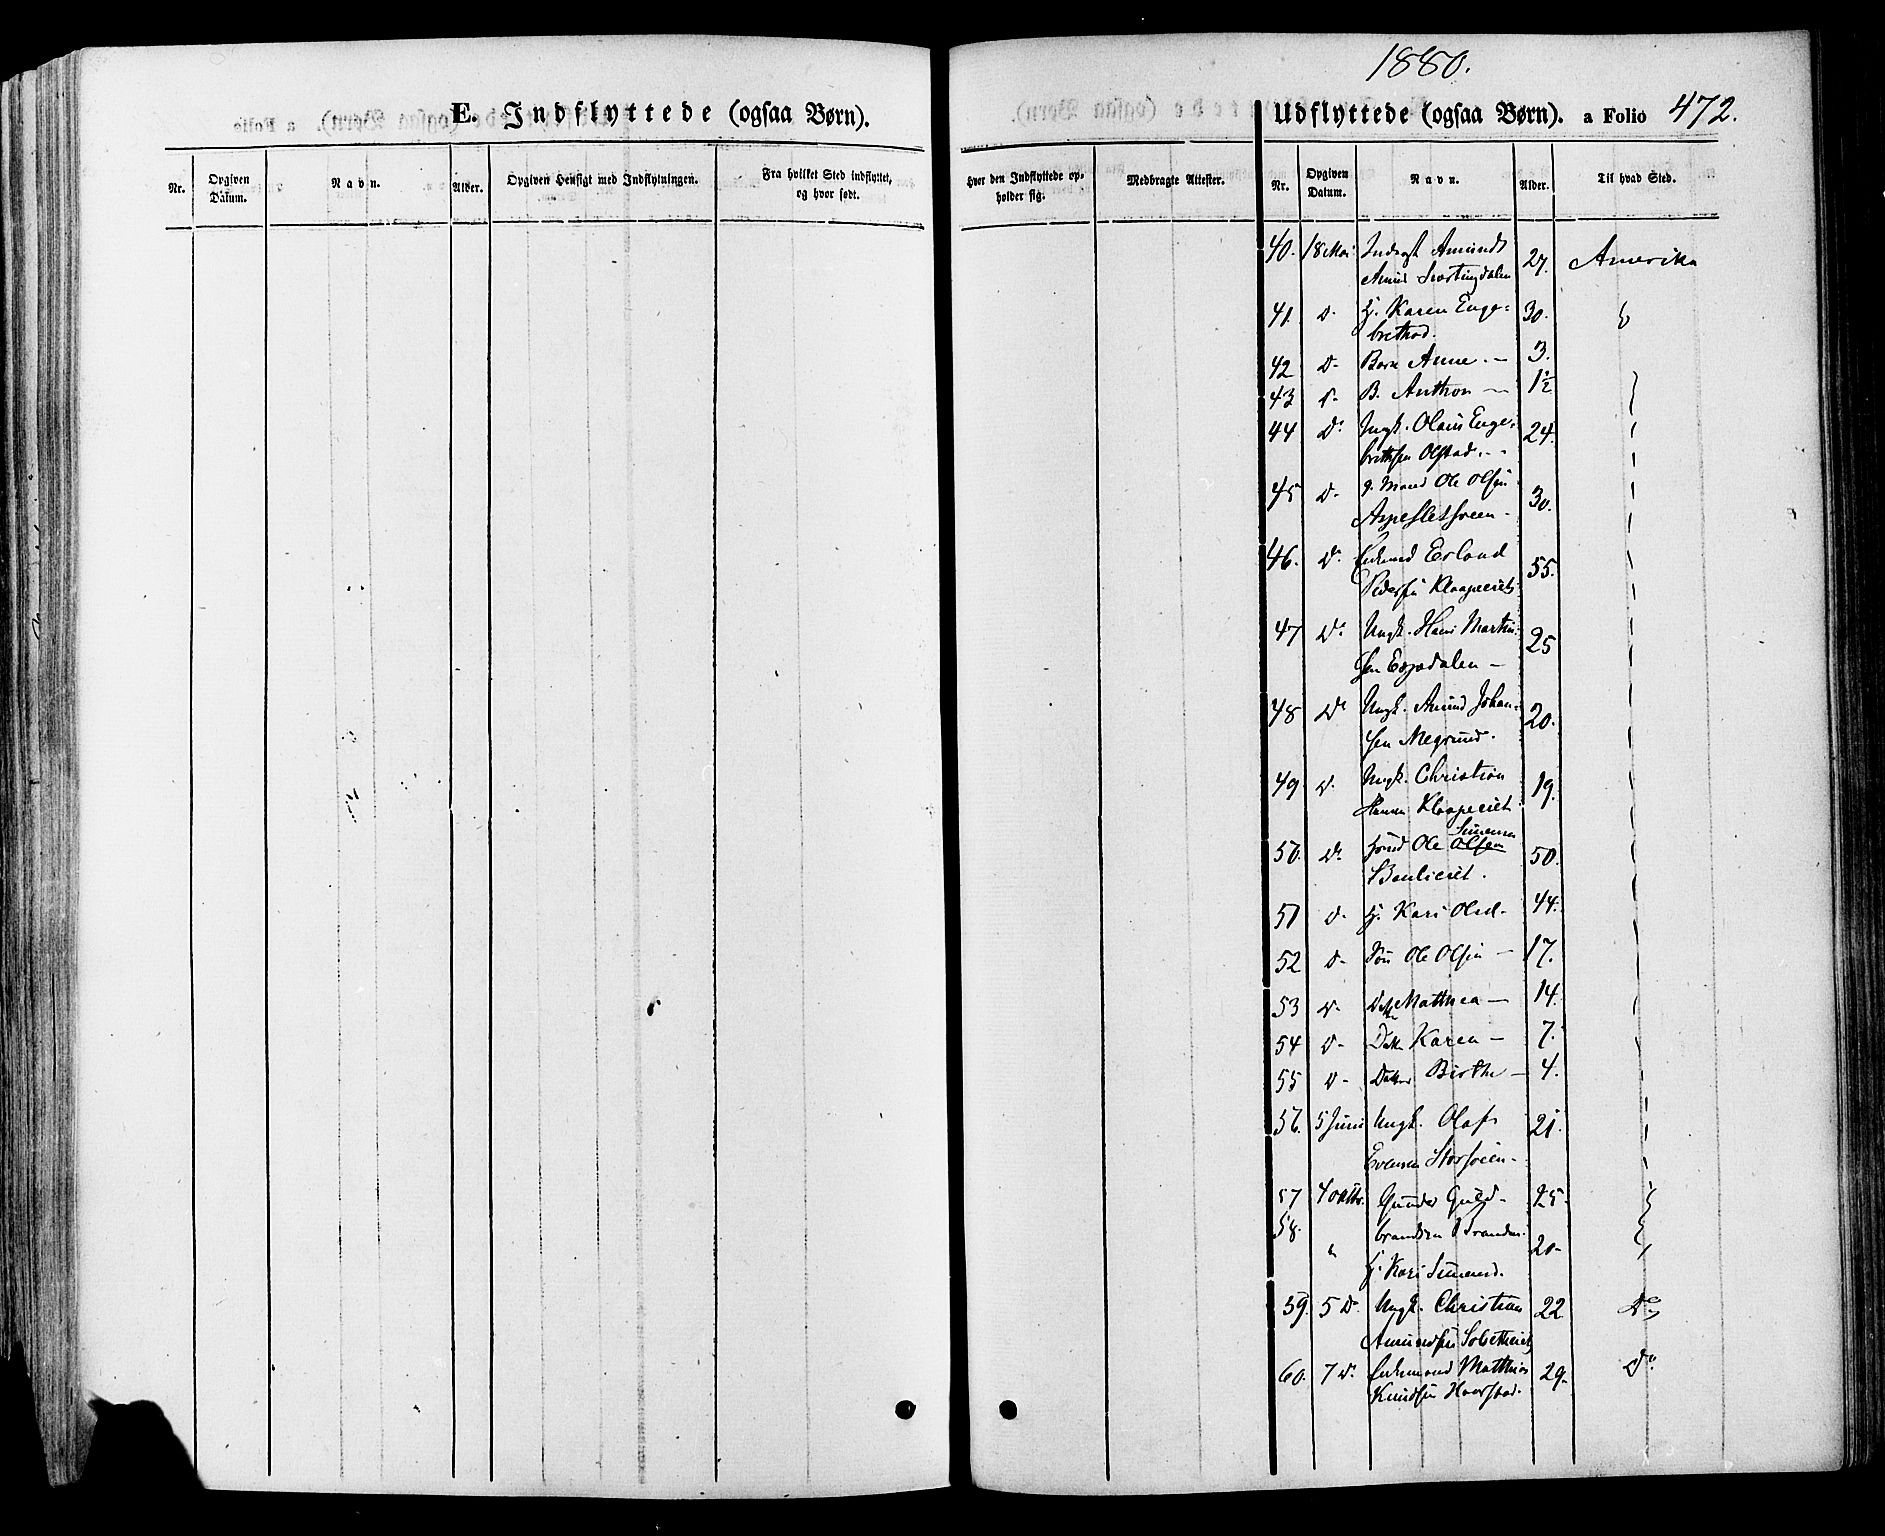 1880.
E. Indflyttede (ogsaa Børn).
Udflyttede (ogsaa Børn). a Folio 472.
Nr. Opgiven Datum. Navn. Alder. Opgiven Hensigt med Indflytningen. Fra hvilket Sted indflyttet, og hvor født.
Hvor den Indflyttede opholder sig. Medbragte Attester. Nr. Opgiven Datum. Navn. Alder. Til hvad Sted.
40. 18 Mai Amunds 27. Amerika
41. D- H. Karen Enge-
brethsd. 30.
42 D- Barn Anne. - 3.
43 D- B. Anthon - 1½
44 Do Ungk. Olaus Enge-
brethsen Olstad. 24.
45 D- g. Mand Ole Olsen 30.
46. Do Enkemd Erland
Pedersen 55.
47 Do Ungk. Hans Martin-
sen Espedalen - 25
48 Do Ungk. Amund Johan-
sen Megrund. 20.
49. D- Ungk. Christian
Hansen 19.
Simensen
50. Do Ole Olsen 50.
51 D- H. Kari Olsd. 44.
52 D- Søn Ole Olsen - 17.
53 D- Datter Mathea - 14.
54 D- Datter Karen - 7.
55 D- Datter Birthe - 4.
56. 5 Juni Ungk. Olaf
Evensen Storsveen - 21.
57 4 Octbr. Gunder Guld- 25.
58. brandsen
" H. Kari Simensd. 20-
59. 5 D- Ungk. Christian 22 Do
Amundsen
60. 7 D- Enkemand Matthias 29. Do
Knudsen Haarstad.